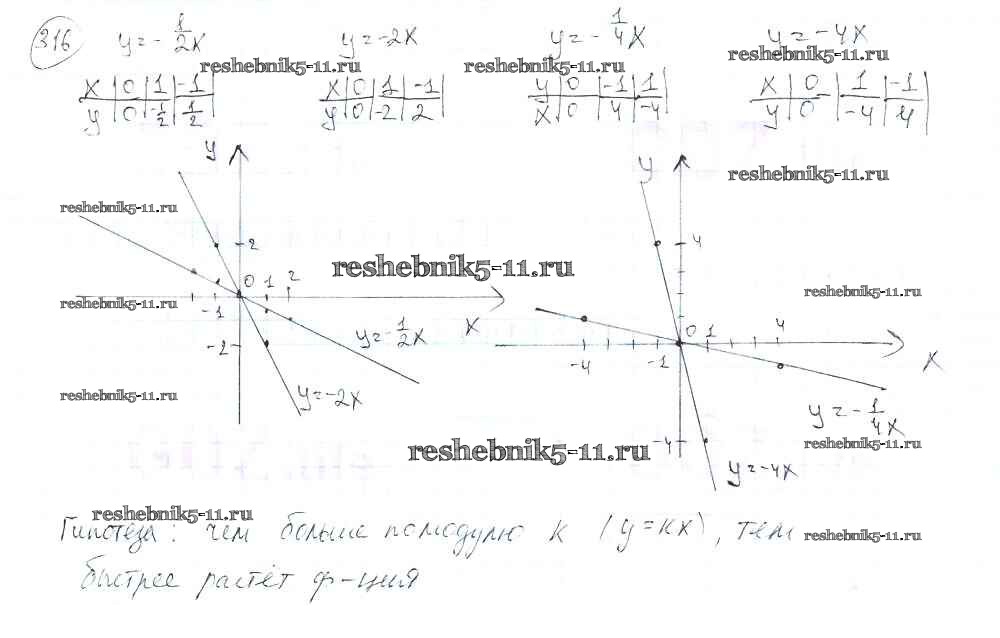 316
y = -1/2 x    y = -2x    y = -1/4 x    y = -4x
reshebnik5-11.ru reshebnik5-11.ru reshebnik5-11.ru
x | 0 | 1 | -1 |    x | 0 | 1 | -1 |    y | 0 | -1 | 1 |    x | 0 | 1 | -1 |
y | 0 | -1/2 | 1/2 |    y | 0 | -2 | 2 |    x | 0 | 4 | -4 |    y | 0 | -4 | 4 |
y y
reshebnik5-11.ru
reshebnik5-11.ru
2 4
reshebnik5-11.ru
0 1 2
reshebnik5-11.ru
reshebnik5-11.ru
-1 x
y = -1/2 x
0 1 4
-2
-4 -1 x
y = -2x
reshebnik5-11.ru
y = -1/4 x
-4
reshebnik5-11.ru
reshebnik5-11.ru
y = -4x
reshebnik5-11.ru
Гипотеза: чем больше по модулю к (y = kx), тем
reshebnik5-11.ru
быстрее растёт ф-ция